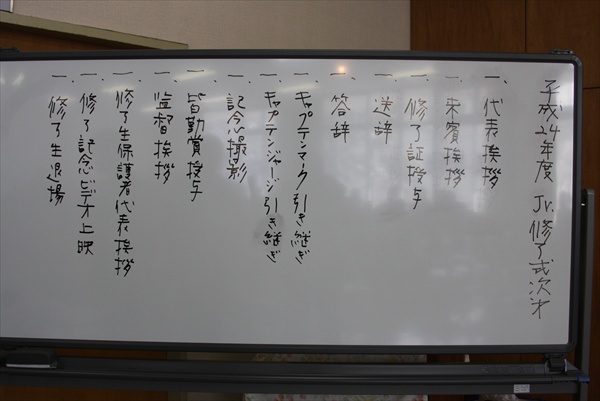 平成24年度 Jr.修了式次才
一、代表挨拶
一、来賓挨拶
一、修了証授与
一、送辞
一、答辞
一、キャプテンマーク引き継ぎ
一、キャプテンジャージ引き継ぎ
一、記念撮影
一、皆勤賞授与
一、監督挨拶
一、修了生保護者代表挨拶
一、修了記念ビデオ上映
一、修了生退場